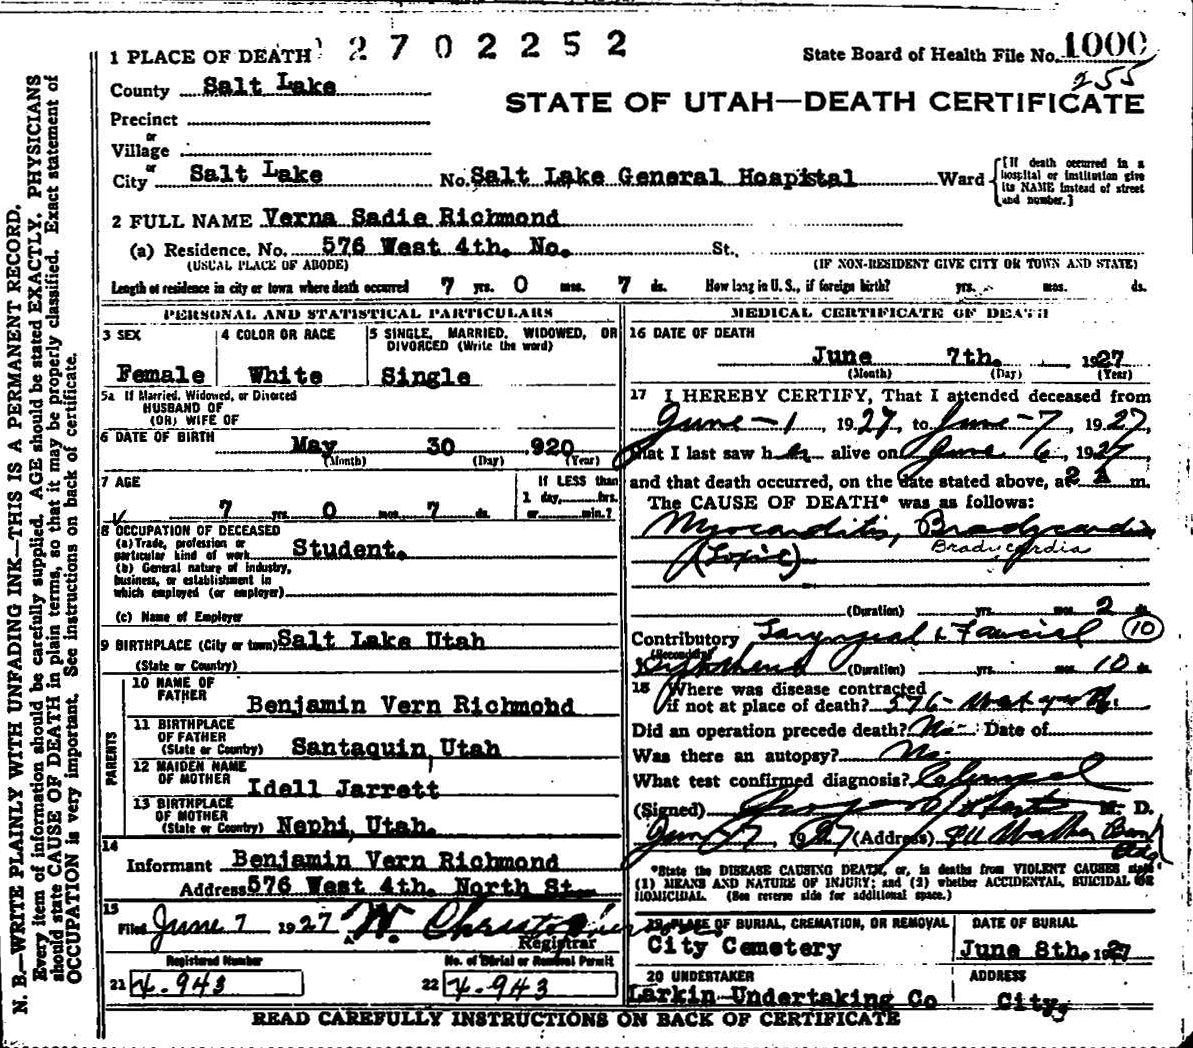 1 PLACE OF DEATH
2702252
State Board of Health File No. 1000
255
County Salt Lake
STATE OF UTAH—DEATH CERTIFICATE
Precinct
or
Village
or
City Salt Lake No. Salt Lake General Hospital Ward
[If death occurred in a
hospital or institution give
its NAME instead of street
and number.]
2 FULL NAME Verna Sadie Richmond
(a) Residence, No. 576 West 4th. No. St.
(USUAL PLACE OF ABODE) (IF NON-RESIDENT GIVE CITY OR TOWN AND STATE)
Length of residence in city or town where death occurred 7 yrs. 0 mos. 7 ds. How long in U. S., if foreign birth? yrs. mos. ds.
PERSONAL AND STATISTICAL PARTICULARS
3 SEX
Female
4 COLOR OR RACE
White
5 SINGLE, MARRIED, WIDOWED, OR
DIVORCED (Write the word)
Single
5a If Married, Widowed, or Divorced
HUSBAND OF
(OR) WIFE OF
6 DATE OF BIRTH
May 30 920
(Month) (Day) (Year)
7 AGE
7 yrs. 0 mos. 7 ds.
If LESS than
1 day, hrs.
or min.?
8 OCCUPATION OF DECEASED
(a) Trade, profession or
particular kind of work Student.
(b) General nature of industry,
business, or establishment in
which employed (or employer)
(c) Name of Employer
9 BIRTHPLACE (City or town) Salt Lake Utah
(State or Country)
PARENTS
10 NAME OF
FATHER
Benjamin Vern Richmond
11 BIRTHPLACE
OF FATHER
(State or Country) Santaquin, Utah
12 MAIDEN NAME
OF MOTHER
Idell Jarrett
13 BIRTHPLACE
OF MOTHER
(State or Country) Nephi, Utah.
14
Informant Benjamin Vern Richmond
Address 576 West 4th. North St.
15
Filed June 7 1927 W.
Registrar
Registered Number
21 4-943
No. of Burial or Removal Permit
22 4-943
MEDICAL CERTIFICATE OF DEATH
16 DATE OF DEATH
June 7th. 1927
(Month) (Day) (Year)
17 I HEREBY CERTIFY, That I attended deceased from
June-1, 1927, to June-7, 1927,
that I last saw her alive on June 6, 1927,
and that death occurred, on the date stated above, at 2 A m.
The CAUSE OF DEATH* was as follows:
Myocarditis, Bradycardia
Bradycardia
(Toxic)
(Duration) yrs. mos. 2 ds.
Contributory Laryngeal & Faucial 10
(Secondary)
Diphtheria (Duration) yrs. mos. 10 ds.
18 Where was disease contracted
if not at place of death? 576- West 4th N.
Did an operation precede death? No- Date of
Was there an autopsy? No.
What test confirmed diagnosis?
(Signed) M. D.
June-7, 1927 (Address)
*State the DISEASE CAUSING DEATH, or, in deaths from VIOLENT CAUSES state
(1) MEANS AND NATURE OF INJURY; and (2) whether ACCIDENTAL, SUICIDAL OR
HOMICIDAL. (See reverse side for additional space.)
19 PLACE OF BURIAL, CREMATION, OR REMOVAL
City Cemetery
DATE OF BURIAL
June 8th. 1927
20 UNDERTAKER
Larkin Undertaking Co
ADDRESS
City,
READ CAREFULLY INSTRUCTIONS ON BACK OF CERTIFICATE
N. B.—WRITE PLAINLY WITH UNFADING INK—THIS IS A PERMANENT RECORD.
Every item of information should be carefully supplied. AGE should be stated EXACTLY. PHYSICIANS
should state CAUSE OF DEATH in plain terms, so that it may be properly classified. Exact statement of
OCCUPATION is very important. See instructions on back of certificate.